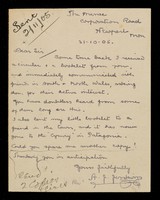 Sent
2/11/05
The Manse
Corporation Road
Newport
Mon
31-10-05.
Dear Sir
Some time back I received
a circular & a booklet from your,
and immediately communicated with
friends in South & North Wales, asking
them to show active interest.
You have doubtless heard from some
of them long ere this.
I also lent my little booklet to a
friend in the town, and it has now
gone to the "Colony" in Patagonia.
Could you spare me another copy?
Thanking you in anticipation,
Yours faithfully